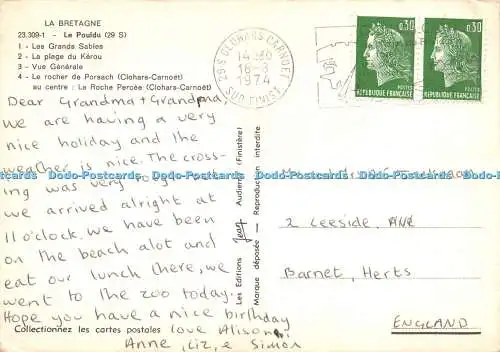 LA BRETAGNE
23.309-1 - Le Pouldu (29 S)
1 - Les Grands Sables
2 - La plage du Kérou
3 - Vue Générale
4 - Le rocher de Porsach (Clohars-Carnoët)
au centre : La Roche Percée (Clohars-Carnoët)
Dear Grandma + Grandpa,
we are having a very
nice holiday and the
weather is nice. The cross-
ing was very
we arrived alright at
11 o'clock. we have been
on the beach alot and
eat our lunch there, we
went to the zoo today.
Hope you have a nice birthday
love Alison
Anne, Liz, e Simon
Collectionnez les cartes postales
Les Editions Jean Audierne (Finistère)
Marque déposée - Reproduction interdite
29 S CLOHARS CARNOET
14 H30
16-8
1974
SUD FINIST.
0,30
POSTES
REPUBLIQUE FRANÇAISE
0,30
POSTES
REPUBLIQUE FRANÇAISE
2 Leeside, Ave
Barnet, Herts
ENGLAND
Dodo-Postcards Dodo-Postcards Dodo-Postcards
www.dodo-postcards.com